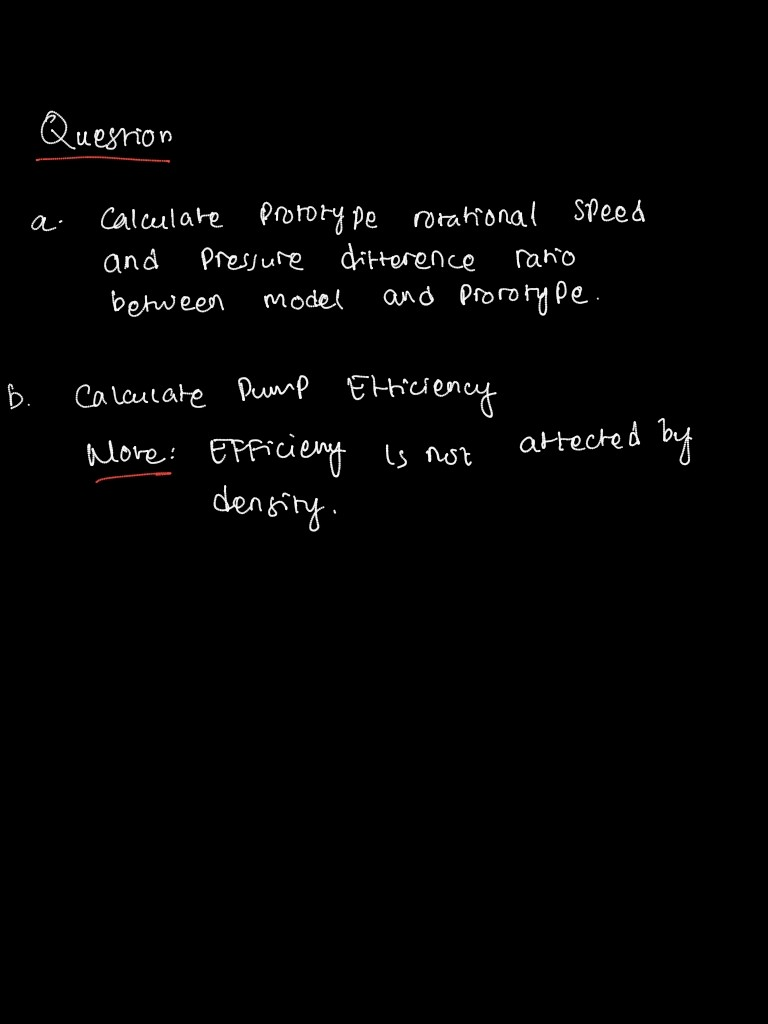 Question
a. Calculate Prototype rotational speed
and Pressure difference ratio
between model and Prototype.
b. Calculate Pump Efficiency
Note: Efficieny is not affected by
density.